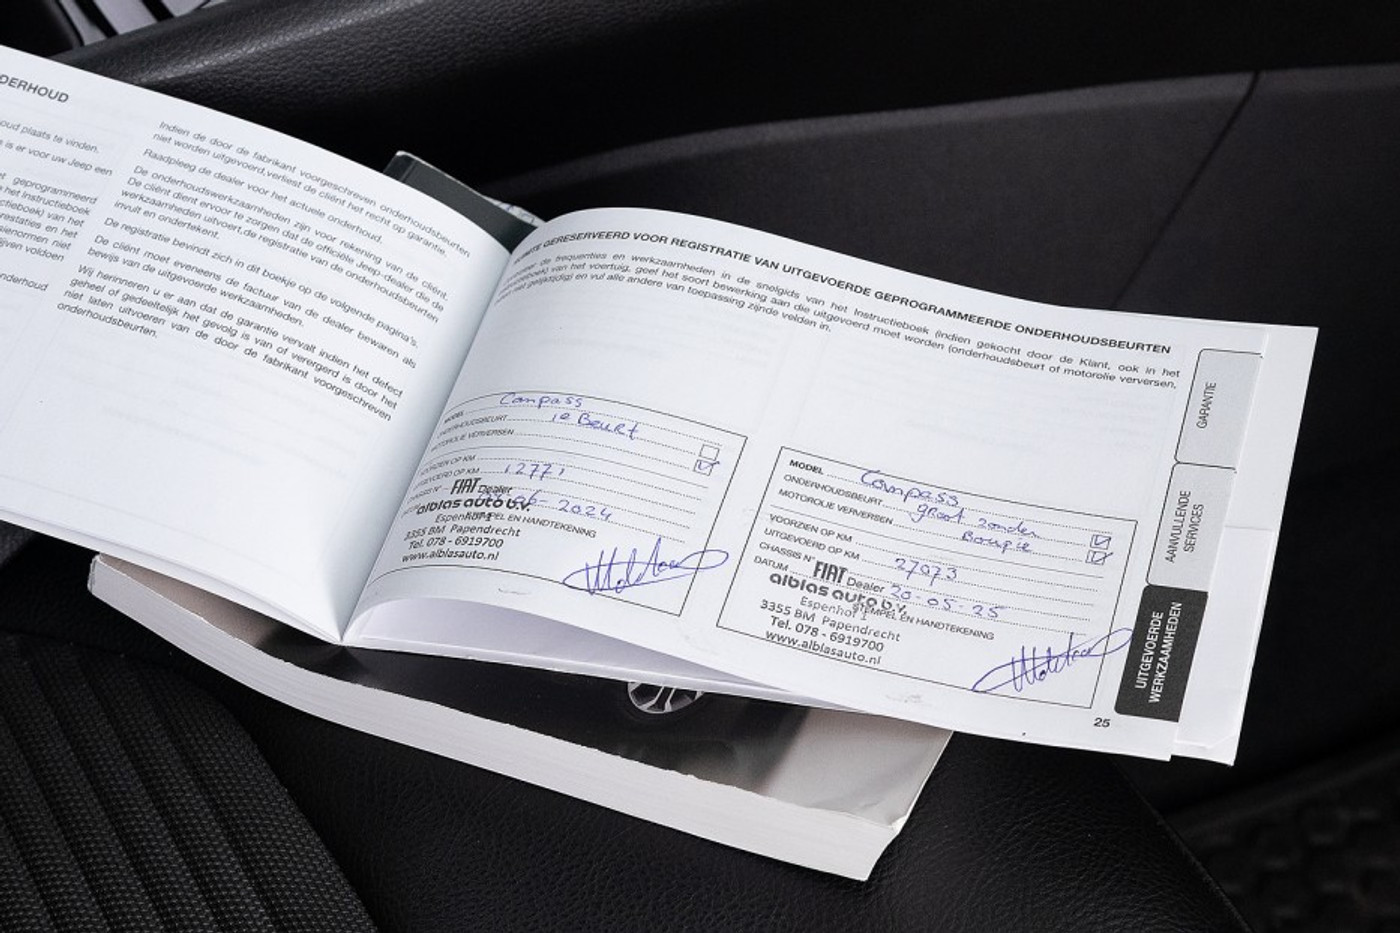 ONDERHOUD
oud plaats te vinden.
is er voor uw Jeep een
geprogrammeerd
het Instructieboek
ctieboek) van het
restaties en het
sienormen niet
ijven voldoen
onderhoud
Indien de door de fabrikant voorgeschreven onderhoudsbeurten
niet worden uitgevoerd,verliest de cliënt het recht op garantie.
Raadpleeg de dealer voor het actuele onderhoud.
De onderhoudswerkzaamheden zijn voor rekening van de cliënt.
De cliënt dient ervoor te zorgen dat de officiële Jeep-dealer die de
werkzaamheden uitvoert,de registratie van de onderhoudsbeurten
invult en ondertekent.
De registratie bevindt zich in dit boekje op de volgende pagina's.
De cliënt moet eveneens de factuur van de dealer bewaren als
bewijs van de uitgevoerde werkzaamheden.
Wij herinneren u er aan dat de garantie vervalt indien het defect
geheel of gedeeltelijk het gevolg is van of verergerd is door het
niet laten uitvoeren van de door de fabrikant voorgeschreven
onderhoudsbeurten.
RUIMTE GERESERVEERD VOOR REGISTRATIE VAN UITGEVOERDE GEPROGRAMMEERDE ONDERHOUDSBEURTEN
de frequenties en werkzaamheden in de snelgids van het Instructieboek (indien gekocht door de Klant, ook in het
van het voertuig, geef het soort bewerking aan die uitgevoerd moet worden (onderhoudsbeurt of motorolie verversen,
niet gelijktijdig) en vul alle andere van toepassing zijnde velden in.
MODEL Compass
ONDERHOUDSBEURT 1e Beurt
MOTOROLIE VERVERSEN
VOORZIEN OP KM
UITGEVOERD OP KM 12771
CHASSIS N°
06-2024
FIAT Dealer
alblas auto b.v.
Espenhof 1
STEMPEL EN HANDTEKENING
3355 BM Papendrecht
Tel. 078 - 6919700
www.alblasauto.nl
MODEL Compass
ONDERHOUDSBEURT groot zonder
MOTOROLIE VERVERSEN Bougie
VOORZIEN OP KM
UITGEVOERD OP KM 27973
CHASSIS N°
DATUM 20-05-25
FIAT Dealer
alblas auto b.v.
Espenhof 1
STEMPEL EN HANDTEKENING
3355 BM Papendrecht
Tel. 078 - 6919700
www.alblasauto.nl
25
GARANTIE
AANVULLENDE
SERVICES
UITGEVOERDE
WERKZAAMHEDEN